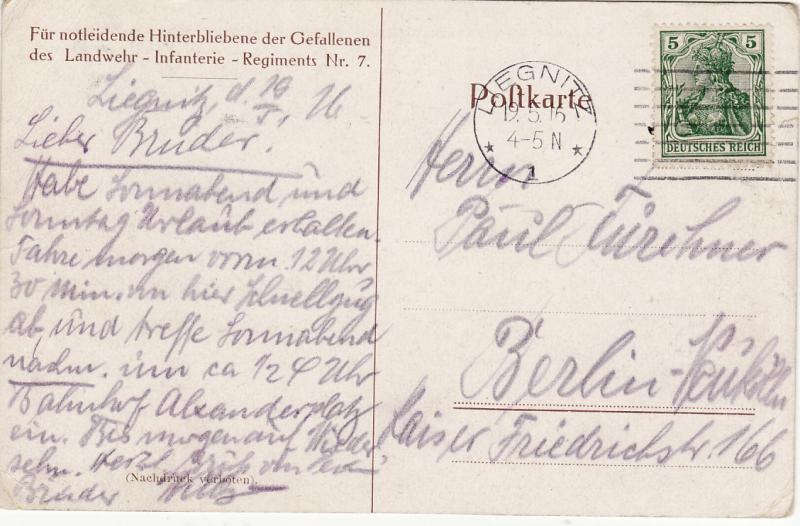 Für notleidende Hinterbliebene der Gefallenen
des Landwehr - Infanterie - Regiments Nr. 7.
Liegnitz, d. 19/5. 16
Lieber Bruder!
Habe Sonnabend und
Sonntag Urlaub erhalten.
Fahre morgen vorm. 12 Uhr
30 min. von hier Schnellzug
ab, und treffe Sonnabend
nachm. um ca 1/2 4 Uhr
Bahnhof Alexanderplatz
ein. Bis morgen auf Wieder
sehn. Herzl. Gruß von
Bruder Willy
(Nachdruck verboten).
Postkarte
LIEGNITZ
19.5.16
4-5 N
1
5 5
DEUTSCHES REICH
Herrn
Paul
Berlin-Neukölln
Kaiser Friedrichstr. 166